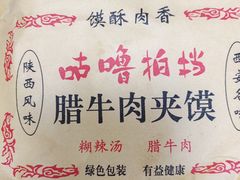 馍酥肉香
陕西风味
咕噜拍档
西安名吃
腊牛肉夹馍
糊辣汤 腊牛肉
绿色包装 有益健康